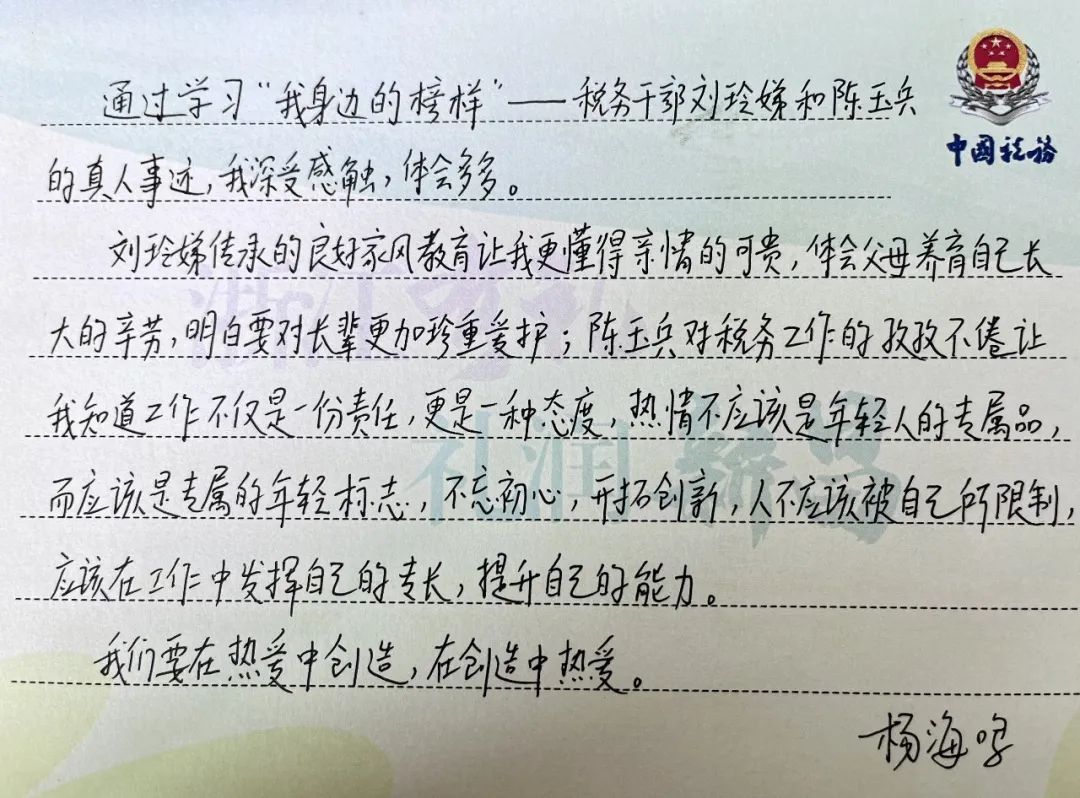 通过学习“我身边的榜样”——税务干部刘玲娣和陈玉兵
中国税务
的真人事迹，我深受感触，体会多多。
刘玲娣传承的良好家风教育让我更懂得亲情的可贵，体会父母养育自己长
大的辛劳，明白要对长辈更加珍重爱护；陈玉兵对税务工作的孜孜不倦让
我知道工作不仅是一份责任，更是一种态度，热情不应该是年轻人的专属品，
而应该是专属的年轻标志，不忘初心，开拓创新，人不应该被自己所限制，
应该在工作中发挥自己的专长，提升自己的能力。
我们要在热爱中创造，在创造中热爱。
杨海